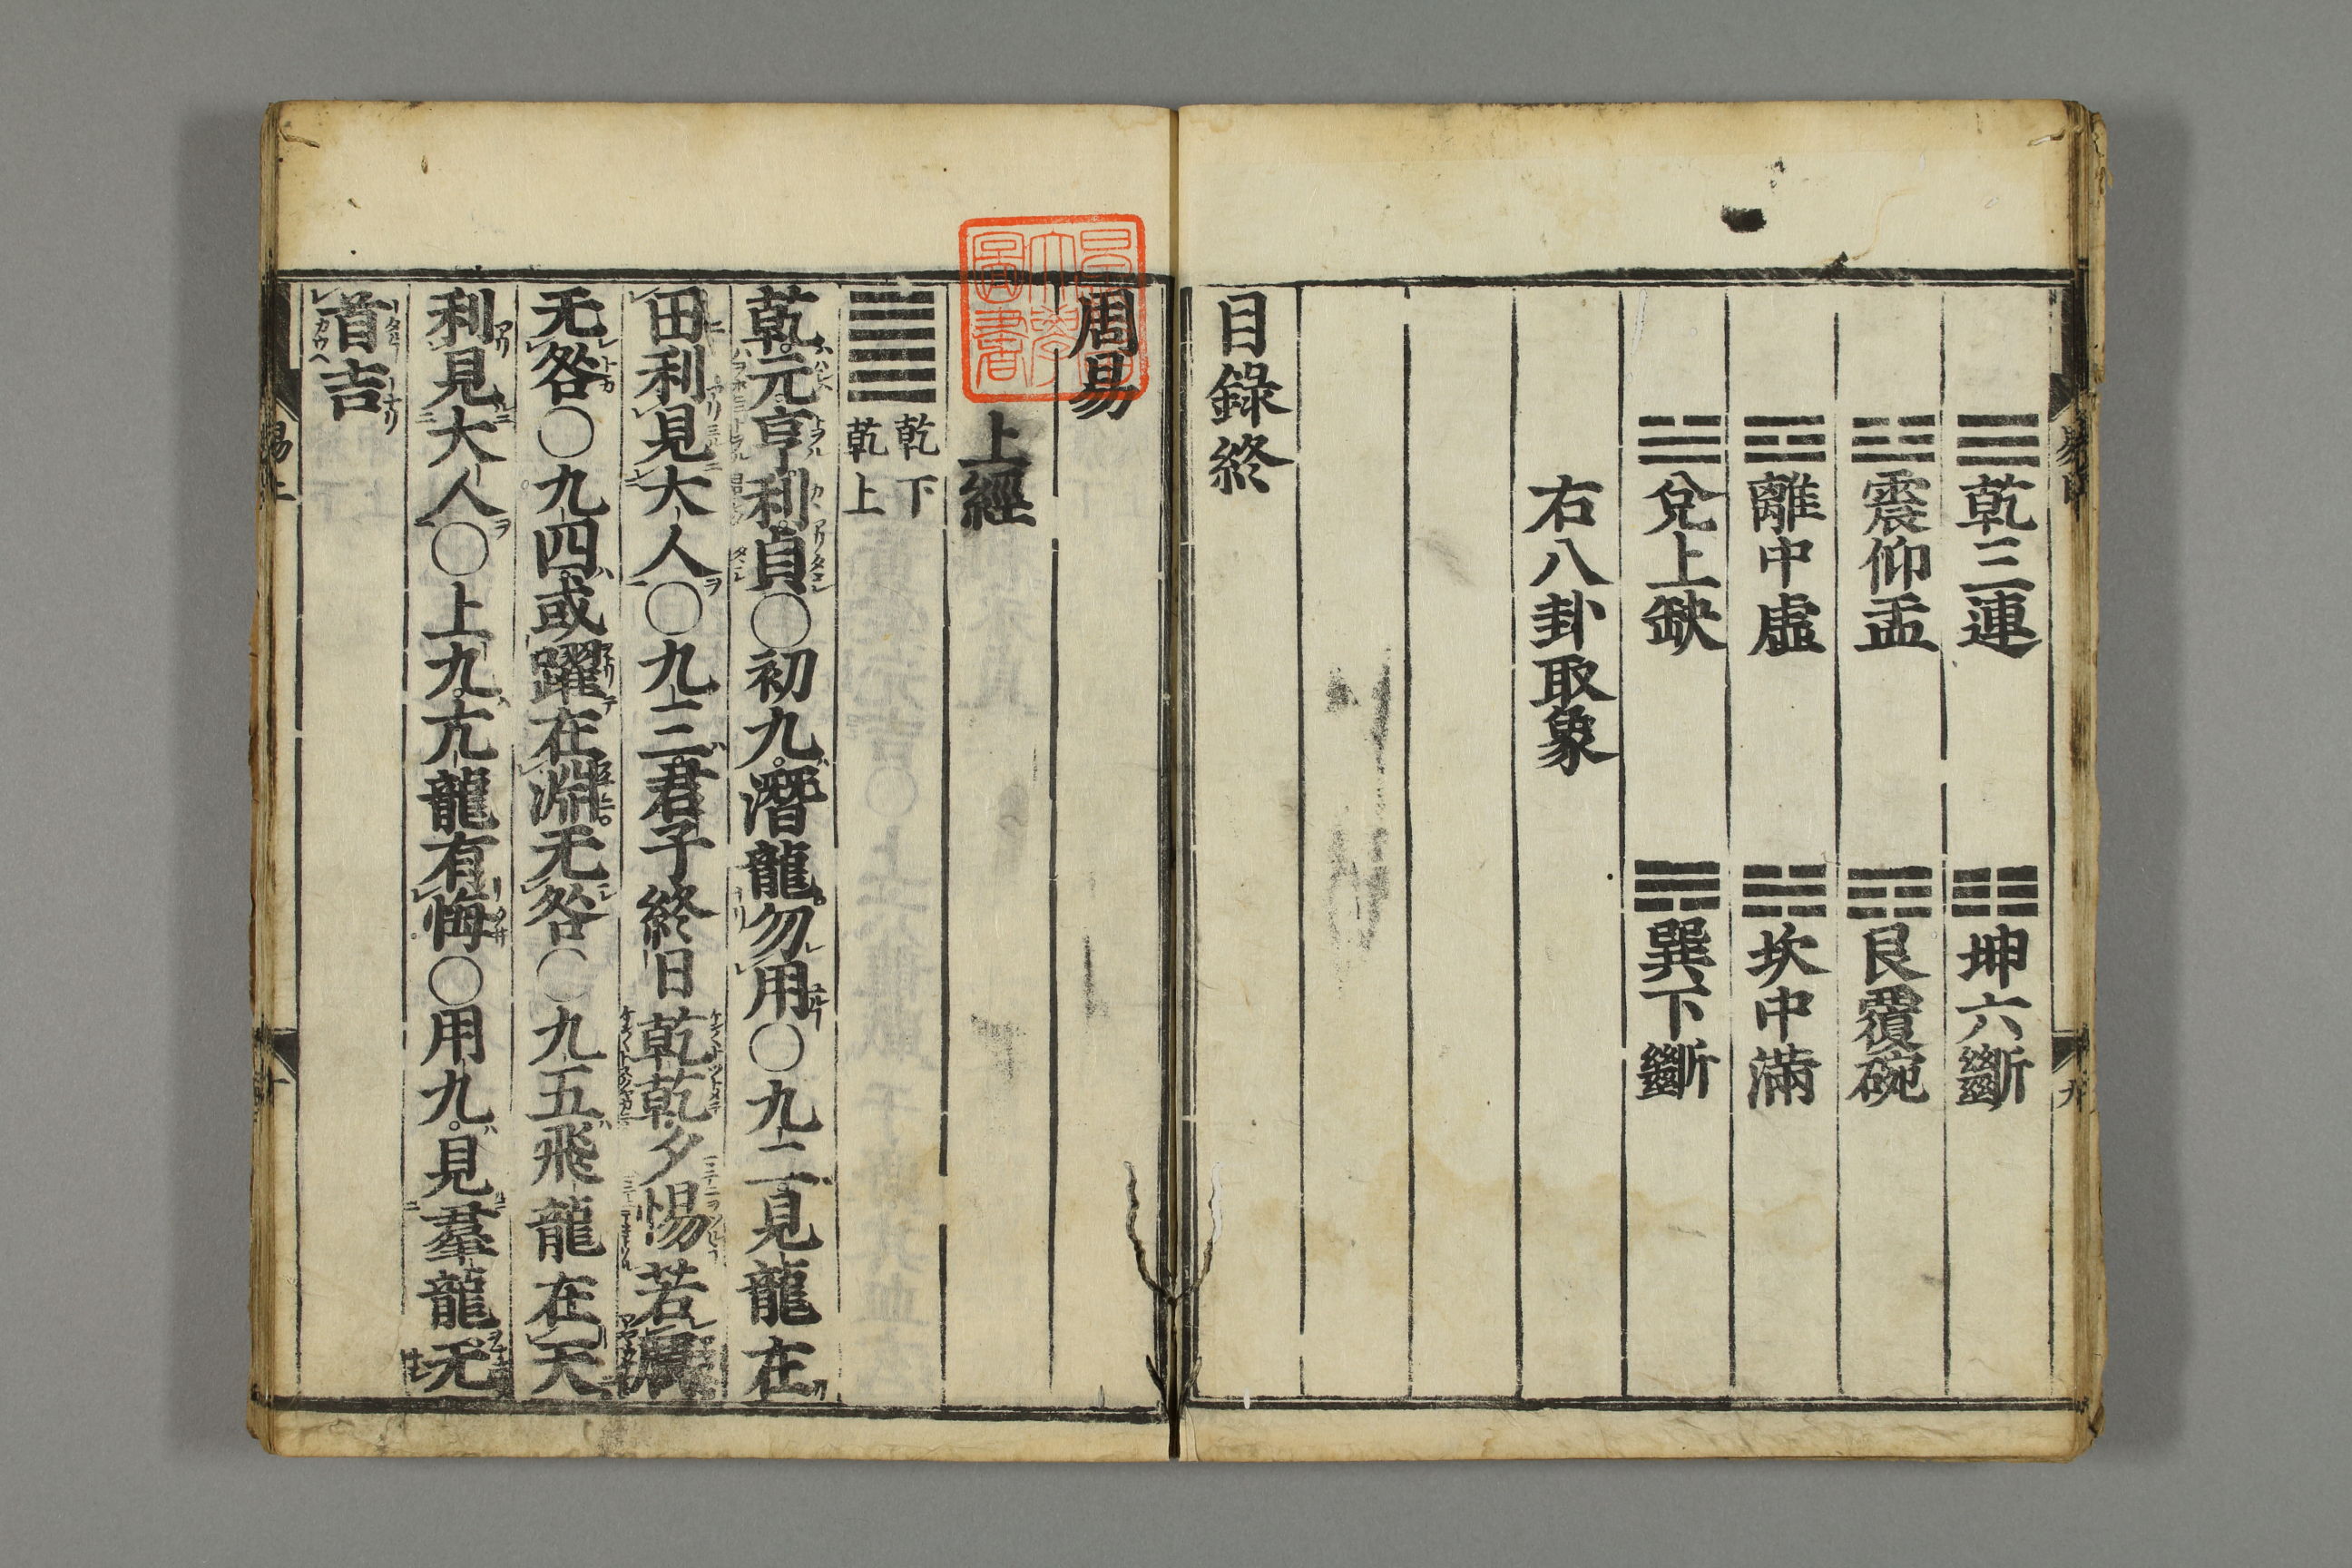 ☰乾三連 ☷坤六斷
☳震仰盂 ☶艮覆碗
☲離中虛 ☵坎中滿
☱兌上缺 ☴巽下斷
右八卦取象
目錄終
九
周易
上經
䷀ 乾下
乾上
乾元亨利貞○初九潛龍勿用○九二見龍在
田利見大人○九三君子終日乾乾夕惕若厲
无咎○九四或躍在淵无咎○九五飛龍在天
利見大人○上九亢龍有悔○用九見羣龍无
首吉
易上
十